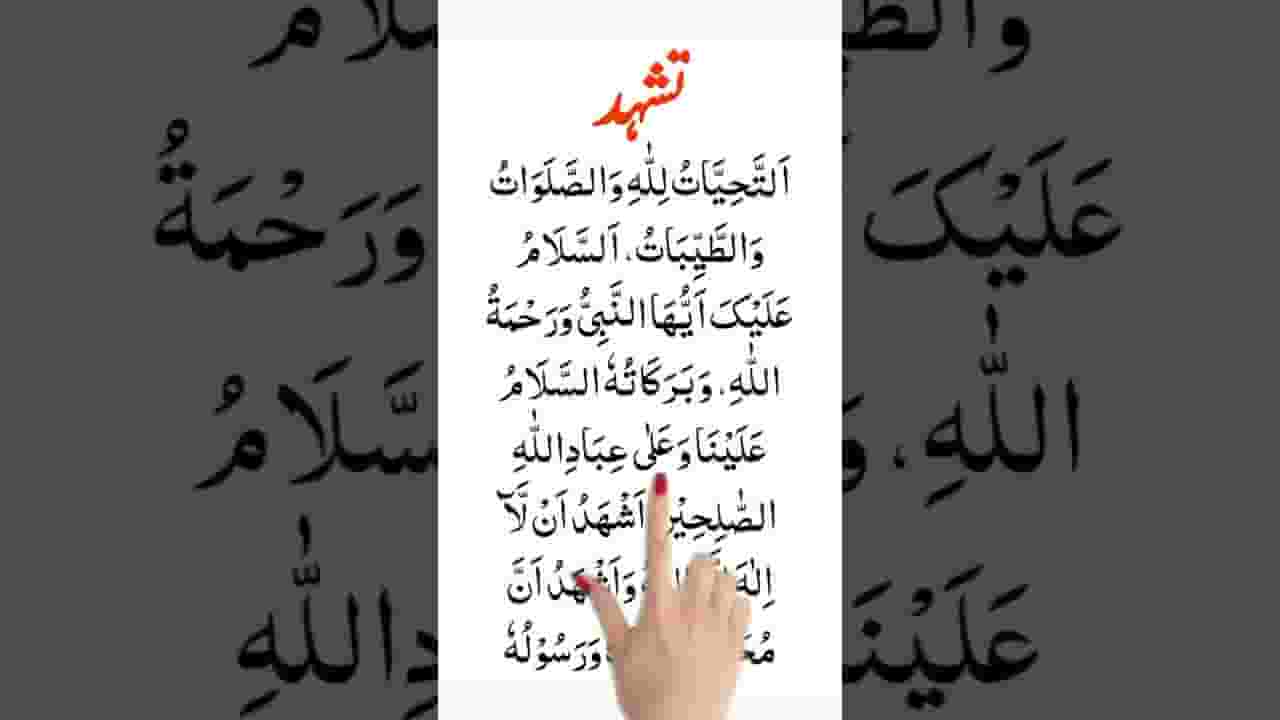 تشہد
اَلتَّحِيَّاتُ لِلّٰهِ وَالصَّلَوَاتُ
وَالطَّيِّبَاتُ، اَلسَّلَامُ
عَلَيْکَ اَيُّهَا النَّبِیُّ وَرَحْمَةُ
اللّٰهِ، وَبَرَكَاتُهٗ السَّلَامُ
عَلَيْنَا وَعَلٰى عِبَادِ اللّٰهِ
الصّٰلِحِيْنَ اَشْهَدُ اَنْ لَّآ
اِلٰهَ وَاَشْهَدُ اَنَّ
وَرَسُوْلُهٗ